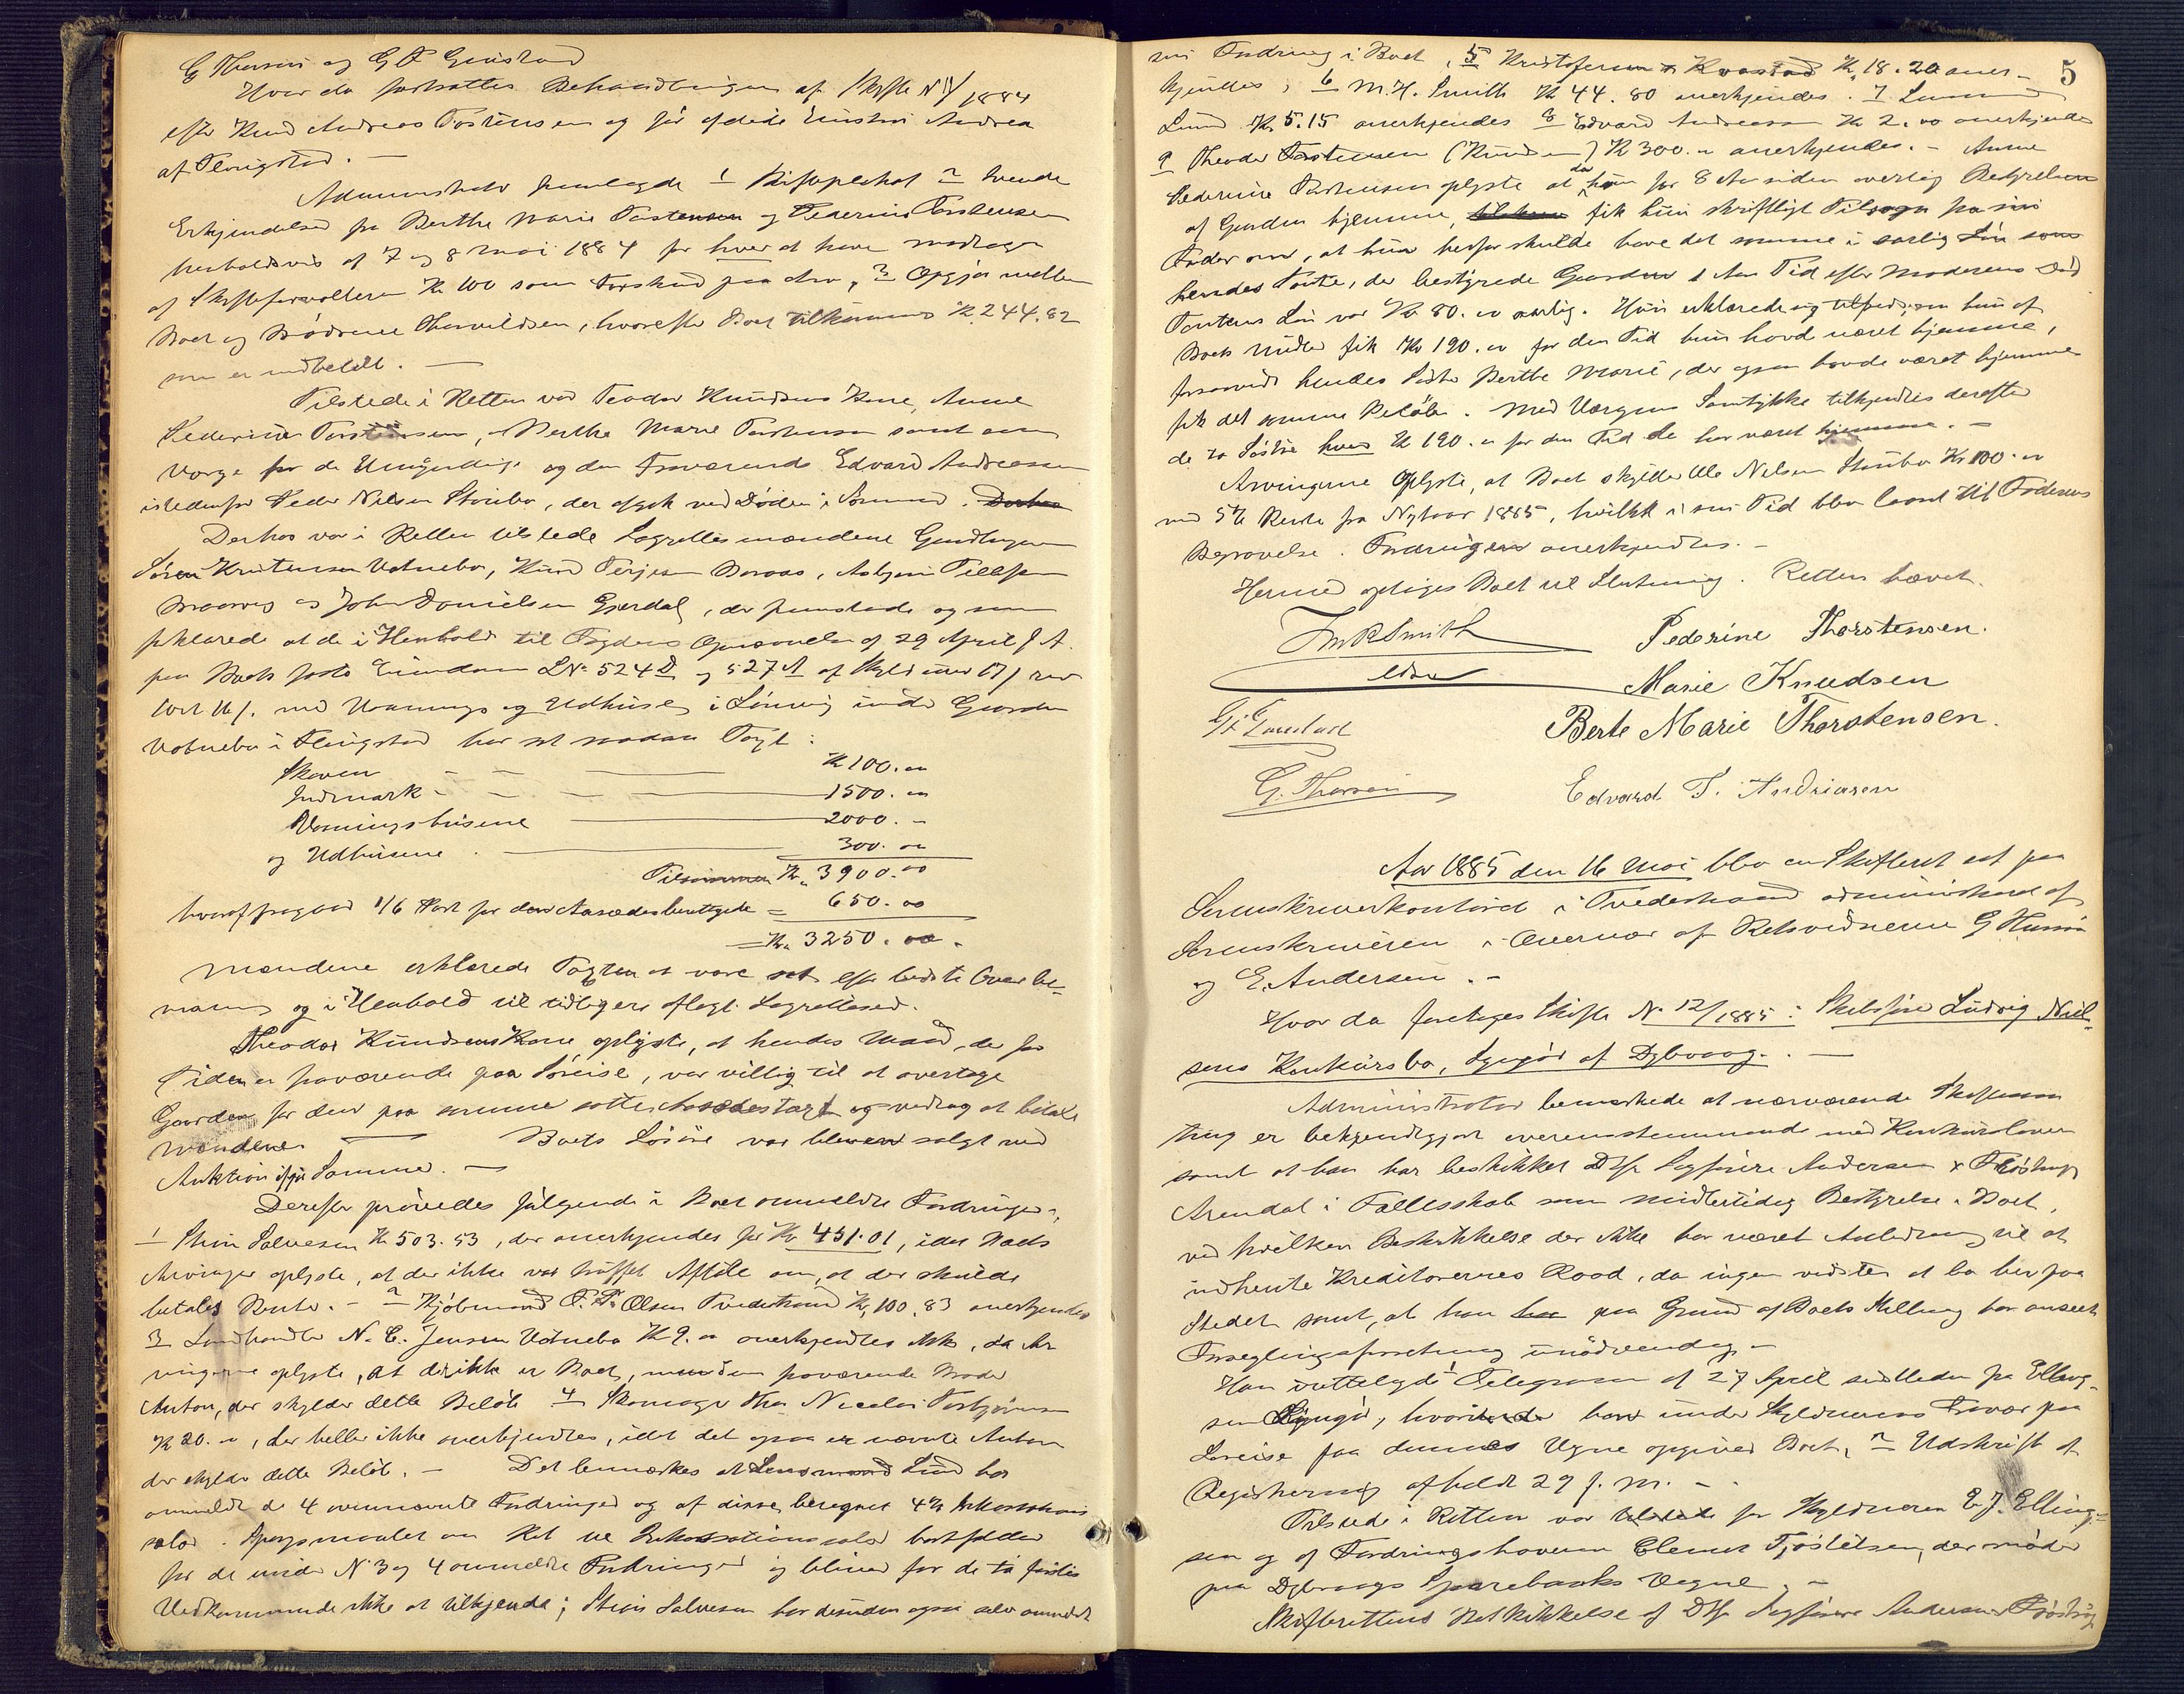 G Thorsen og G F Grimstad
Hvor da fortsattes Behandlingen af Skifte N 1884
efter Knud Andreas Torstensen og før afdøde Hustru Andrea
af Flangstad. —
Administrator fremlagde 1 Skifteplakat 2 tvende
Erkjendelser fra Berthe Marie Torstensen og Pederine Torstensen
henholdsvis af 7 og 8 Mai 1884 for hver at have modtaget
af Skifteforvalteren Kr 100 som Forskud paa Arv, 3 Opgjør mellem
Boet og Brødrene Thorvildsen, hvorefter Boet tilkommer Kr 244.82
som er indbetalt. —
Tilstede i Retten var Teodor Knudsens Kone, Anne
Pederine Torstensen, Berthe Marie Torstensen samt som
Værge for de Umyndige og den fraværende Edvard Andreassen
istedenfor Peder Nielsen Stenbo, der afgik ved Døden i Sommer.
Derhos var i Retten tilstede Lagrettesmændene Gaardbrugerne
Søren Kristensen Votnebo, Knud Terjesen Boraas, Asbjørn Tellefsen
og John Danielsen Gjerdal, der fremstode og som
forklarede at de i Henhold til Fogdens Opnævnelse af 29 April f. A.
paa Boets faste Eiendom LNo 524 D og 527 A af Skyld
med Vaanings og Udhuse i Gaarden
Votnebo i Flangstad har sat saadan Taxt:
Skoven — — — Kr 100. 00
Indmark — — — 1500. 00
Vaaningshusene — 2000. -
og Udhusene — 300. 00
Tilsammen Kr. 3900. 00
hvoraf fragaar 1/6 Part for den Aasædesberettigede = 650. 00
= Kr. 3250. 00.
Mændene erklærede Taxten at være sat efter bedste Overbe-
visning og i Henhold til tidligere aflagt Lagretteseed.
Theodor Knudsens Kone oplyste, at hendes Mand, der for
Tiden er fraværende paa Søreise, var villig til at overtage
Gaarden for den paa samme satte Aasædestaxt og vedtog at betale
Mændene. — Boets Løsøre var bleven solgt ved
Auktion ifjor Sommer. —
Derefter prøvedes følgende i Boet anmeldte Fordringer:
1 Stian Salvesen Kr 503.53, der anerkjendes for Kr 451.01, idet Boets
Arvinger oplyste, at der ikke var truffet Aftale om, at der skulde
betales Rente. — 2 Kjøbmand Olsen Tvedestrand Kr. 100.83 anerkjendes
3 Landhandler N. C. Jensen Votnebo Kr 9. 00 anerkjendtes ikke, da Ar-
vingerne oplyste, at det ikke er Boet, men den fraværende Broder
Anton, der skylder dette Beløb. 4 Skomager Nicolai Torbjørnsen
Kr 20. 00, der heller ikke anerkjendtes, idet det ogsaa er nævnte Anton
der skylder dette Beløb. — Det bemærkes at Lensmand Lund har
anmeldt de 4 ovennævnte Fordringer og af disse beregnet 4 % Inkassations
salær. Spørgsmaalet om Ret til Inkassationssalær bortfalder
for de under N 3 og 4 anmeldte Fordringer og bliver for de to første
Vedkommende ikke at tilkjende; Stian Salvesen har desuden ogsaa selv anmeldt
5
sin Fordring i Boet, 5 Kristofersen Kvastad Kr. 18.20 aner-
kjendes, 6 M. H. Smith Kr 44.80 anerkjendes. 7
Lund Kr. 5.15 anerkjendes 8 Edvard Andreassen Kr 2.00 anerkjendes
9 Theodor Torstensen (Knudsen) Kr 300. 00 anerkjendes. — Anne
Pederine Torstensen oplyste at da hun for 8 Aar siden overtog Bestyrelsen
af Gaarden hjemme, fik hun skriftligt Tilsagn fra sin
Fader om, at hun herfor skulde have det samme i aarlig Løn som
hendes Tante, der bestyrede Gaarden 1 Aars Tid efter Moderens Død
Tantens Løn var Kr 80. 00 aarlig. Hun erklærede sig tilfreds, om hun af
Boets Midler fik Kr 190. 00 for den Tid hun havde været hjemme,
forsaavidt hendes Søster Berthe Marie, der ogsaa havde været hjemme
fik det samme Beløb. Med Værgens Samtykke tilkjendtes derefter
de to Søstre hver Kr 190. 00 for den Tid de har været hjemme. —
Arvingerne oplyste, at Boet skylder Ole Nielsen Stenbo Kr 100. 00
med 5 % Rente fra Nytaar 1885, hvilket i sin Tid blev laant til Faderens
Begravelse. Fordringen anerkjendtes. —
Hermed optoges Boet til Slutning. Retten hævet.
Smith Pederine Thorstensen.
Marie Knudsen
G F Grimstad Berte Marie Thorstensen.
G. Thorsen Edvard T. Andriasen
Aar 1885 den 16 Mai blev en Skifteret sat paa
Sorenskriverkontoret i Tvedestrand administreret af
Sorenskriveren i Overvær af Retsvidnerne G Thorsen
og E. Andersen. —
Hvor da foretoges Skifte No 12/1885: Skibsfører Ludvig Niel-
sens Konkursbo, af Dybvaag. —
Administrator bemærkede at nærværende Skiftesam
ling er bekjendtgjort overensstemmende med Konkursloven
samt at han har beskikket DHr Sagførere Andersen & Frøstrup
Arendal i Fællesskab som midlertidig Bestyrelse i Boet,
ved hvilken Beskikkelse der ikke har været Anledning til at
indhente Kreditorernes Raad, da ingen vidstes at bo her paa
Stedet samt, at han paa Grund af Boets Stilling har anseet
Forseglingsforretning unødvendig. —
Han irettelagde 1 Telegram af 27 April sidstleden fra Elling-
sen, hvori han under Skyldnerens Fravær paa
Søreise paa dennes Vegne opgiver Boet, 2 Udskrift af
Registrering afholdt 29 f. M. —
Tilstede i Retten var for Skyldneren E. J. Elling-
sen og af Fordringshaverne Clemet Tjøstelsen, der møder
paa Dybvaags Sparebanks Vegne, —
Skifterettens Beskikkelse af DHr Sagførere Andersen & Frøstrup